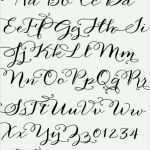 Aa Bb Cc Dd
Ee Ff Gg Hh Ii
Jj Kk Ll Mm
Nn Oo Pp Qq Rr
Ss Tt Uu Vv
Ww Xx Yy Zz
0 1 2 3 4